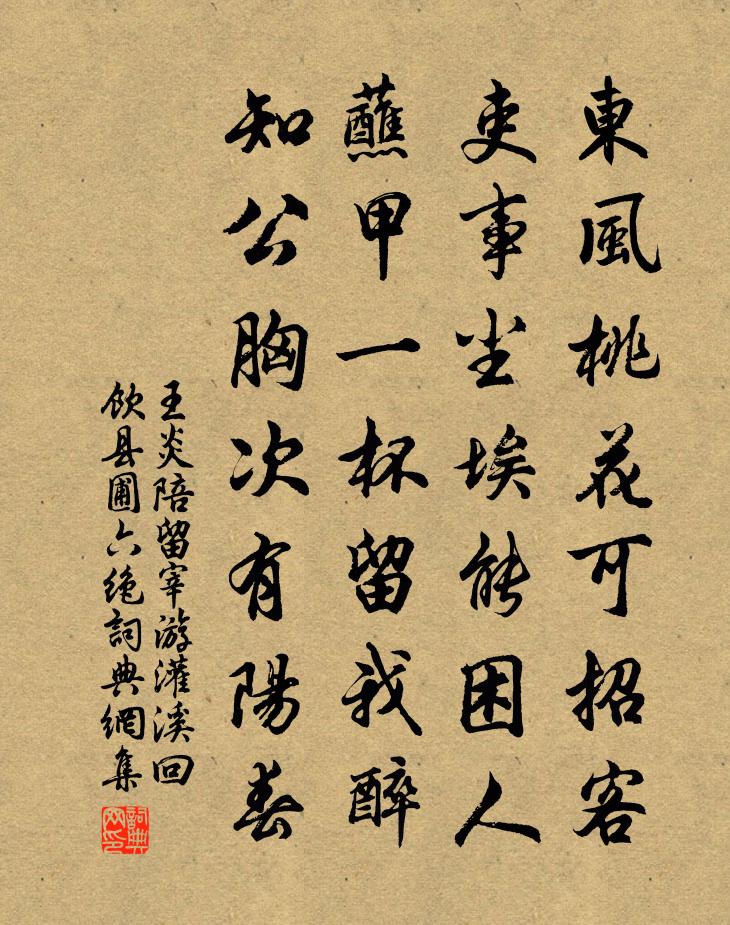 東風桃花可招客
吏事尘埃能困人
蘸甲一杯留我醉
知公胸次有陽春
王炎陪留宰游灌溪回
飲县圃六绝詞典網集
詞典网印